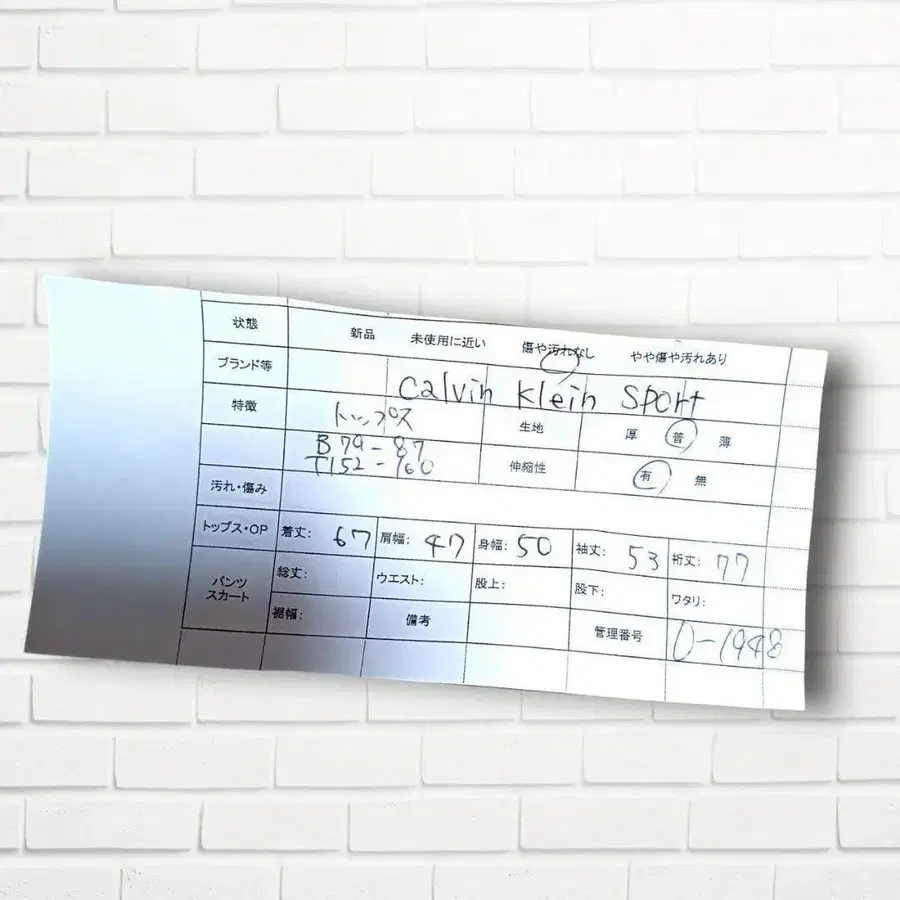 状態 新品 未使用に近い 傷や汚れなし やや傷や汚れあり
ブランド等 Calvin Klein Sport
特徴 トップス 生地 厚 普 薄
B 79-87
T152-160 伸縮性 有 無
汚れ・傷み
トップス・OP 着丈: 67 肩幅: 47 身幅: 50 袖丈: 53 裄丈: 77
パンツ スカート 総丈: ウエスト: 股上: 股下: ワタリ:
裾幅: 備考 管理番号 0-1948